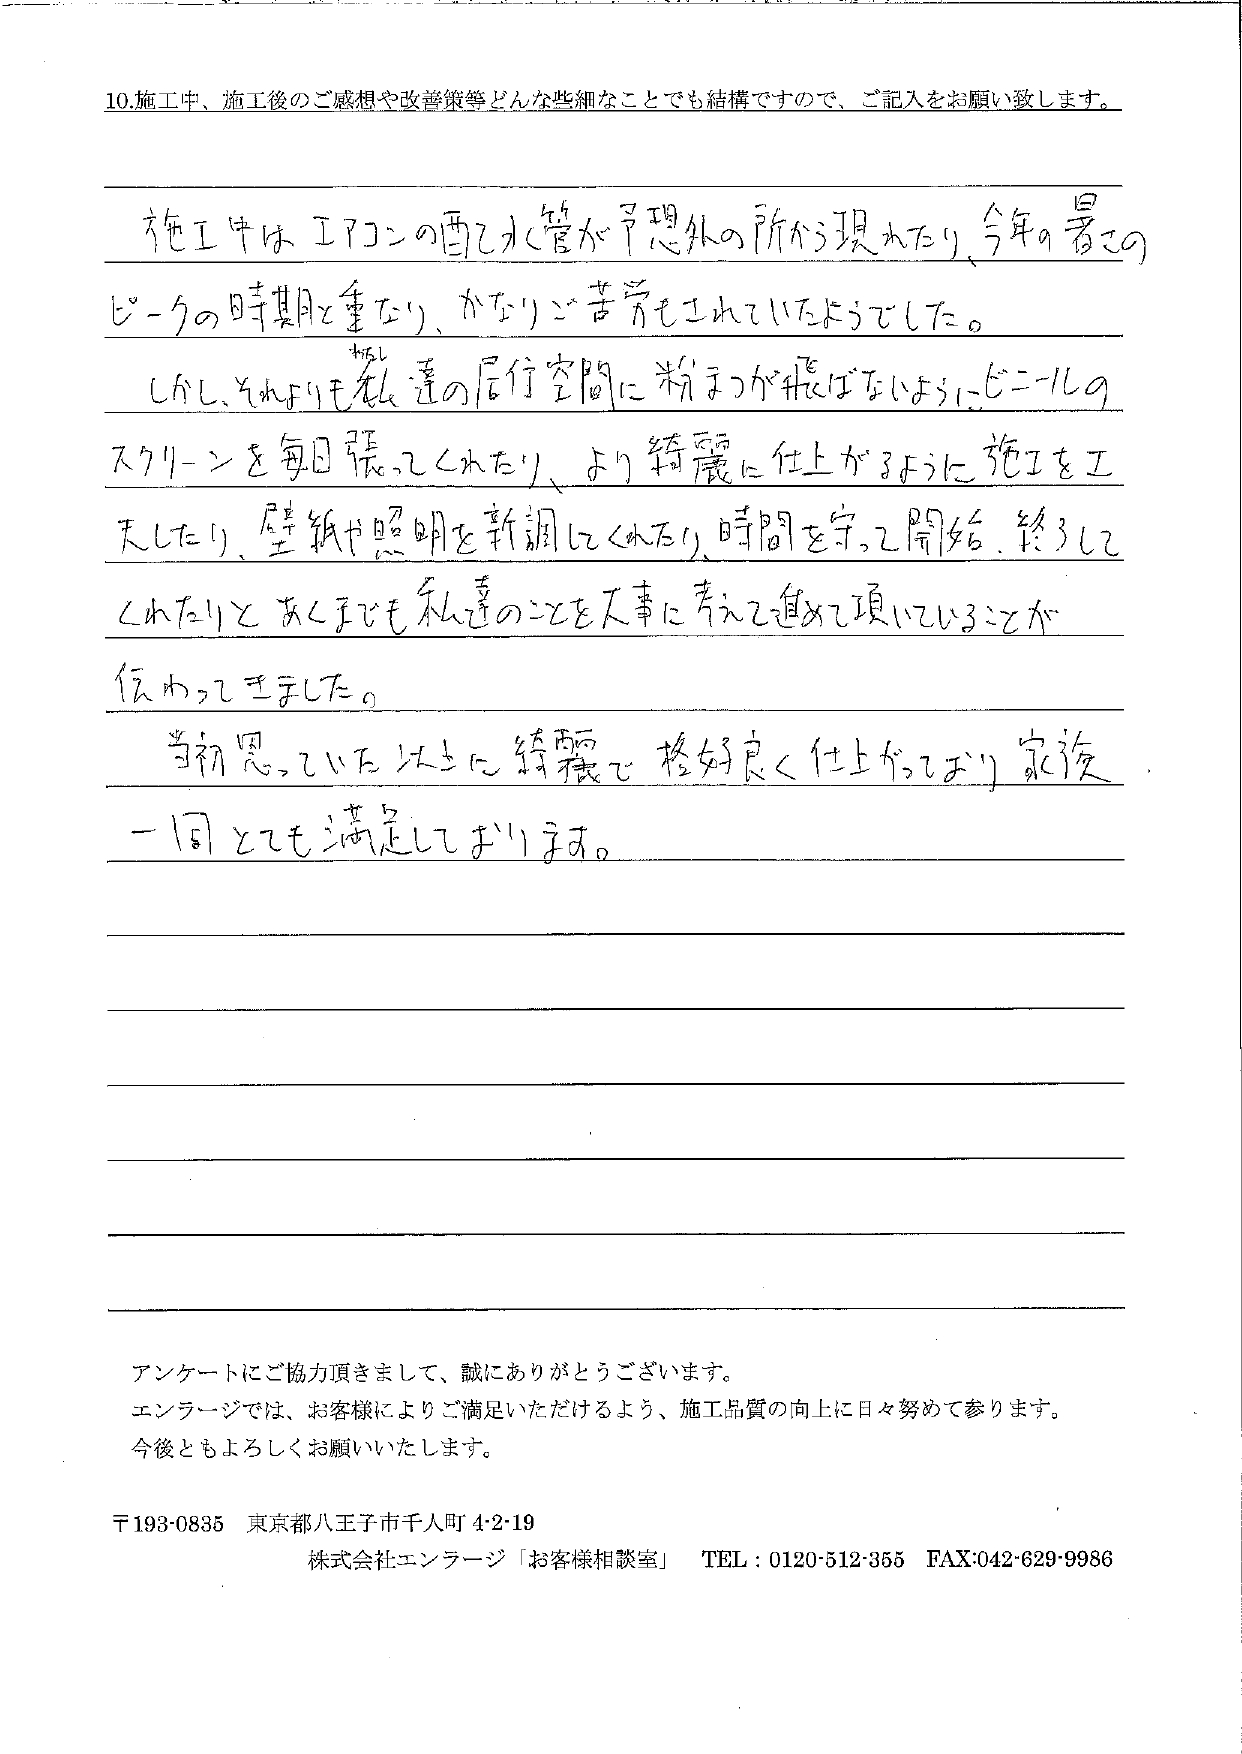 10.施工中、施工後のご感想や改善策等どんな些細なことでも結構ですので、ご記入をお願い致します。
施工中は エアコンの配て水管が予想外の所から現れたり、今年の暑さの
ピークの時期と重なり、かなりご苦労もされていたようでした。
わたし
しかし、それよりも私達の居住空間に粉まつが飛ばないようにビニールの
スクリーンを毎日張ってくれたり、より綺麗に仕上がるように施工を工
夫したり、壁紙や照明を新調してくれたり、時間を守って開始、終了して
くれたりと あくまでも私達のことを大事に考えて進めて頂いていることが
伝わってきました。
当初思っていた以上に綺麗で 格好良く仕上がっており 家族
一同とても満足しております。
アンケートにご協力頂きまして、誠にありがとうございます。
エンラージでは、お客様によりご満足いただけるよう、施工品質の向上に日々努めて参ります。
今後ともよろしくお願いいたします。
〒193-0835　東京都八王子市千人町 4-2-19
株式会社エンラージ「お客様相談室」　TEL : 0120-512-355　FAX:042-629-9986